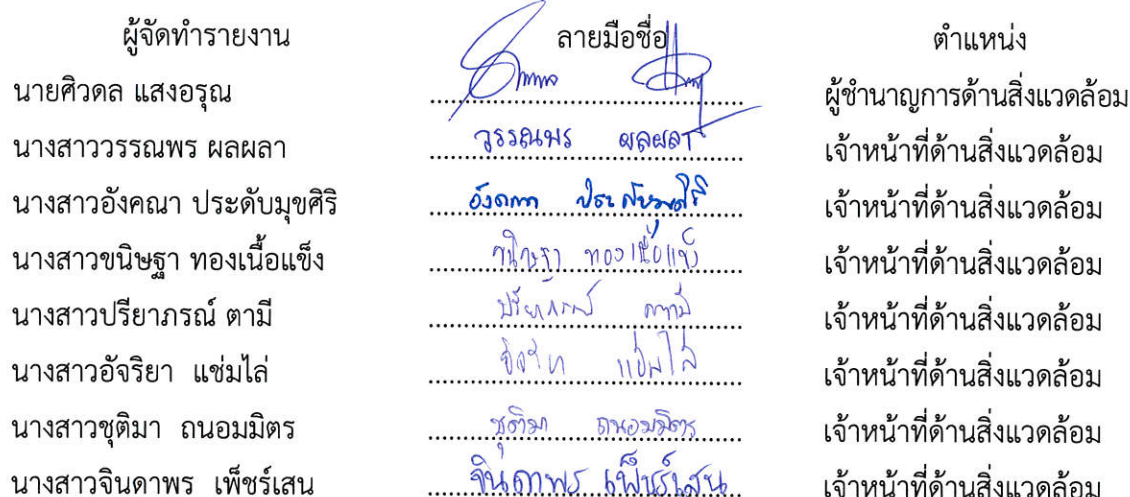 ผู้จัดทำรายงาน ลายมือชื่อ ตำแหน่ง
นายศิวดล แสงอรุณ ผู้ชำนาญการด้านสิ่งแวดล้อม
นางสาววรรณพร ผลผลา วรรณพร ผลผลา เจ้าหน้าที่ด้านสิ่งแวดล้อม
นางสาวอังคณา ประดับมุขศิริ อังคณา ประดับมุขศิริ เจ้าหน้าที่ด้านสิ่งแวดล้อม
นางสาวขนิษฐา ทองเนื้อแข็ง ขนิษฐา ทองเนื้อแข็ง เจ้าหน้าที่ด้านสิ่งแวดล้อม
นางสาวปรียาภรณ์ ตามี ปรียาภรณ์ ตามี เจ้าหน้าที่ด้านสิ่งแวดล้อม
นางสาวอัจริยา แช่มไล่ อัจริยา แช่มไล่ เจ้าหน้าที่ด้านสิ่งแวดล้อม
นางสาวชุติมา ถนอมมิตร ชุติมา ถนอมมิตร เจ้าหน้าที่ด้านสิ่งแวดล้อม
นางสาวจินดาพร เพ็ชร์เสน จินดาพร เพ็ชร์เสน เจ้าหน้าที่ด้านสิ่งแวดล้อม